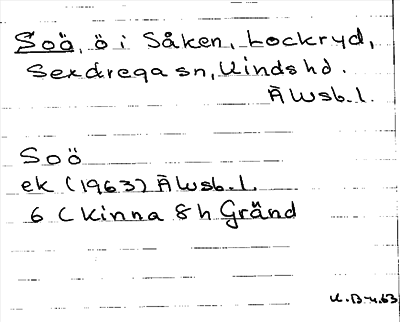 Soö, ö i Såken, Lockryd,
Sexdrega sn, Kinds hd.
Älvsb. l.
Soö
ek (1963) Älvsb. l.
6 C Kinna 8 h Gränd
U. B-n. 63